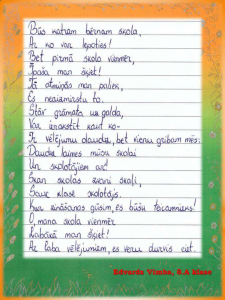 Būs katram bērnam skola,
Ar ko var lepoties!
Bet pirmā skola vienmēr,
Īpaša man šķiet!
Tā atmiņās man paliek,
Es neaizmirstu to.
Stāv grāmata uz galda,
Var izrakstīt kaut ko-
Ir vēlējumu daudz, bet vienu gribam mēs:
Daudz laimes mūsu skolai
Un skolotājiem arī
Skan skolas zvani skaļi,
Sauc klasē skolotājs.
Kur zināšanas gūsim, es būšu
O, mana skola vienmēr
Labākā man šķiet!
Ar laba vēlējumiem, es veru durvis ciet.
Edvards Vimba, 8.A klase